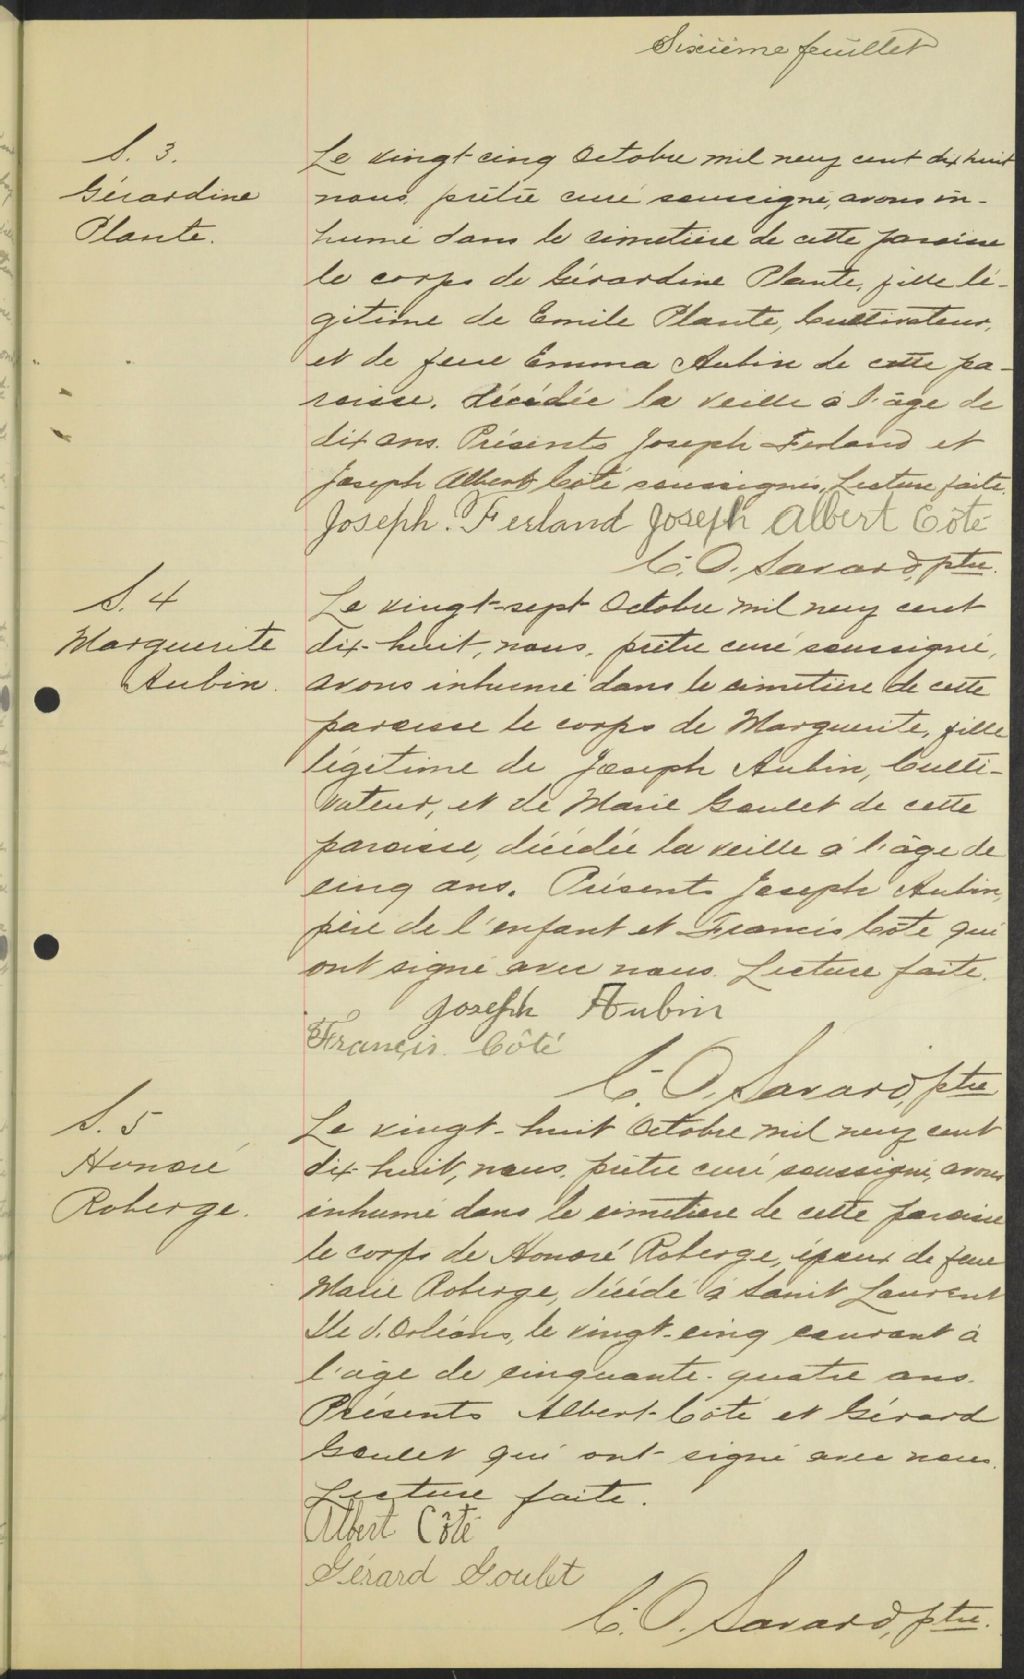 Sixième feuillet
S. 3.
Gérardine
Plante.
Le vingt-cinq Octobre mil neuf cent dix huit
nous, prêtre curé soussigné, avons in-
humé dans le cimetière de cette paroisse
le corps de Gérardine Plante, fille lé-
gitime de Emile Plante, Cultivateur,
et de feue Emma Aubin de cette pa-
roisse, décédée la veille à l'âge de
dix ans. Présents Joseph Ferland et
Joseph Albert Côté soussignés, Lecture faite.
Joseph. Ferland Joseph Albert Côté
C. O. Savard, ptre.
S. 4
Marguerite
Aubin.
Le vingt-sept Octobre mil neuf cent
dix-huit, nous, prêtre curé soussigné,
avons inhumé dans le cimetière de cette
paroisse le corps de Marguerite, fille
légitime de Joseph Aubin, Culti-
vateur, et de Marie Goulet de cette
paroisse, décédée la veille à l'âge de
cinq ans. Présents Joseph Aubin,
père de l'enfant et Francis Côté qui
ont signé avec nous. Lecture faite.
Joseph Aubin
Francis. Côté
C. O. Savard, ptre
S. 5
Honoré
Roberge.
Le vingt-huit Octobre mil neuf cent
dix-huit, nous, prêtre curé soussigné, avons
inhumé dans le cimetière de cette paroisse
le corps de Honoré Roberge, époux de feue
Marie Roberge, décédé à Saint Laurent
Ile d'Orléans, le vingt-cinq courant à
l'âge de cinquante-quatre ans.
Présents Albert Côté et Gérard
Goulet qui ont signé avec nous.
Lecture faite.
Albert Côté
Gérard Goulet
C. O. Savard, ptre.